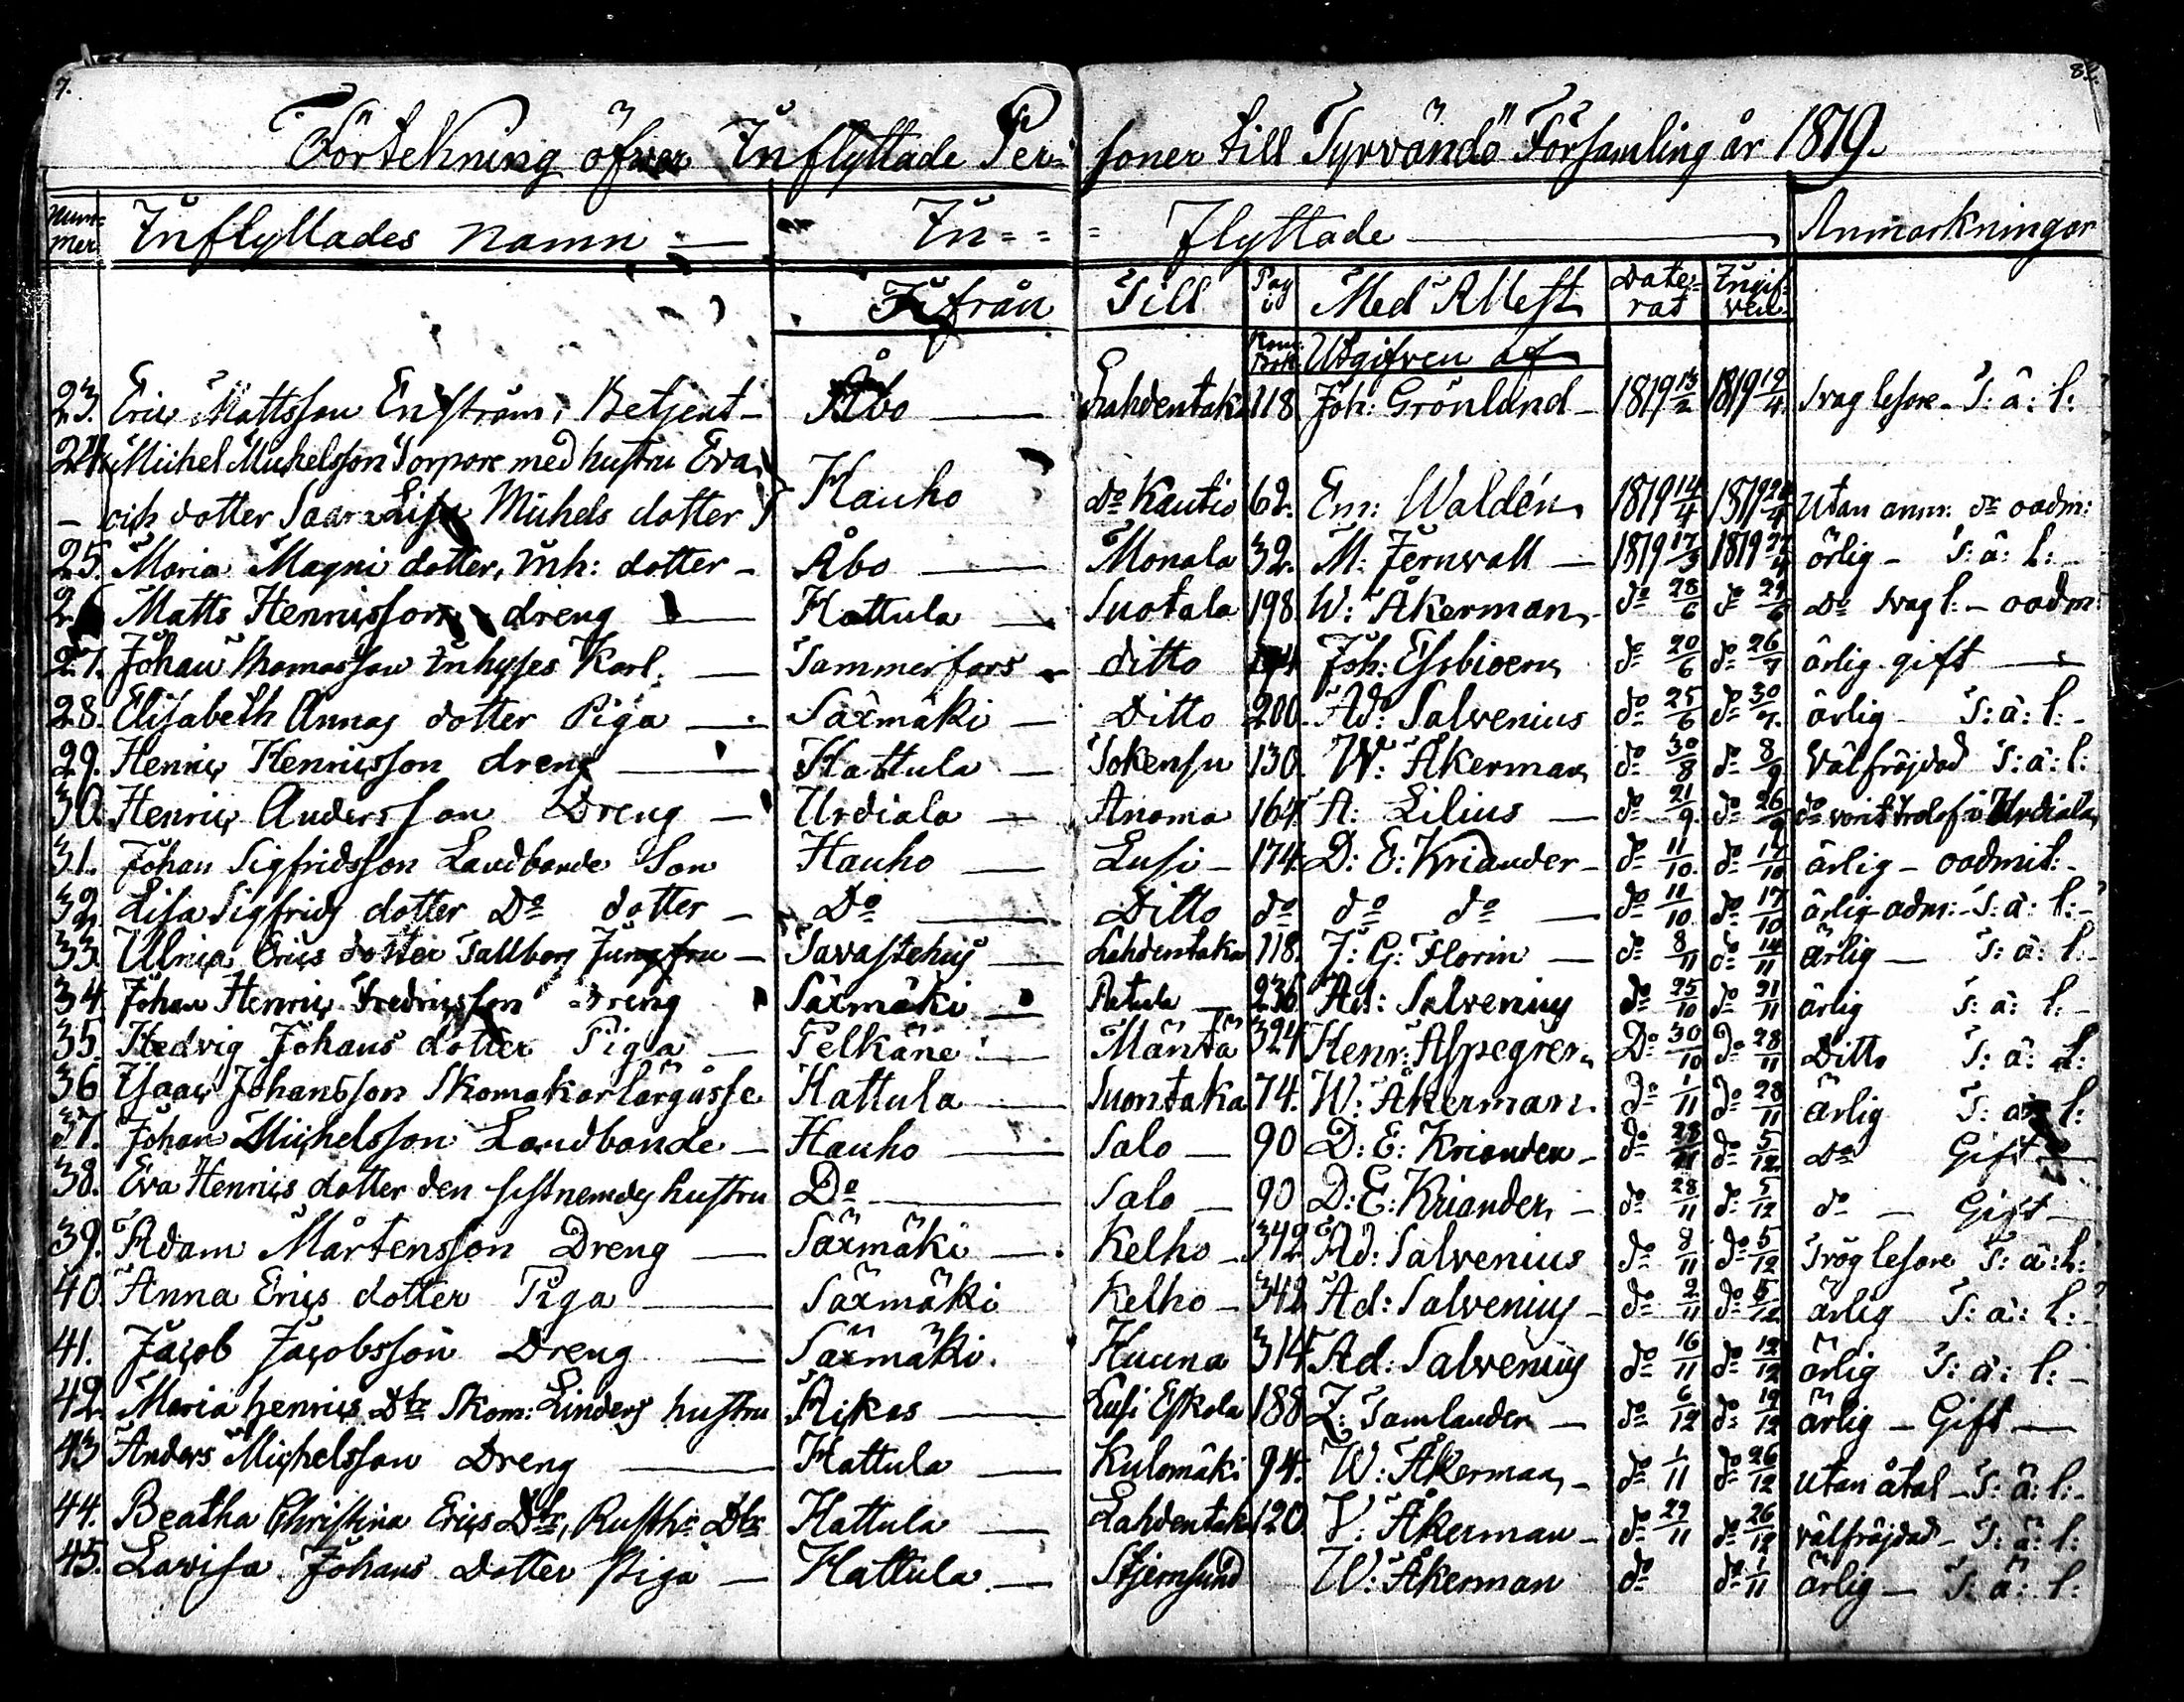 7.
82.
Förtekning öfver Inflyttade Per- soner till Tyrvändö Församling år 1819.
Num- mer Inflyttades namn — In- - - flyttade — Anmärkningar
Ifrån Till Pag i Med Attest Date- rat Ingif- ven
Kom: Bok Utgifven af
23. Eric Mattsson Enström, Betjent — Åbo — Lahdentaka 118 Joh: Grönlund — 1819 13/2 1819 19/4 Svag läsare — S: ä: l:
24. Michel Michelsson Torpare med hustru Eva
— och dotter Saara Lisa Michels dotter Hauho do Kautio 62. Em: Waldén 1819 14/4 1819 Utan anm: do oadm:
25. Maria Magni dotter, Inh: dotter — Åbo — Monala 32. M: Jernvall — 1819 17/3 1819 27/4 ärlig — S: ä: l: —
26 Matts Henricsson dreng — Hattula — Suotala 198 W: Åkerman do 28/6 do 29/6 do svag l: — oadm:
27. Johan Thomasson Inhyses Karl. — Tammerfors — ditto 194 Joh: Essbioern do 20/6 do 26/7 ärlig gift —
28. Elisabeth Annas dotter Piga — Säxmäki — Ditto 200. Ad: Salvenius do 25/6 do 30/7. ärlig — S: ä: l: —
29. Henric Henricsson dreng — Hattula — Tokensu 130. W: Åkerman do 30/8 do 8/9 Välfräjdad S: ä: l:
30. Henric Andersson Dreng — Urdiala — Anoma 164. A: Lilius — do 21/9. do 26/9 do varit i Urdiala
31. Johan Sigfridsson Landbonde Son Hauho — Lusi — 174. D: E: Kriander — do 11/10. do 17/10 ärlig — oadmit: —
32. Lisa Sigfrids dotter Do dotter — Do — Ditto do do do — do 11/10 do 17/10 ärlig adm: — S: ä: l: —
33. Ulrica Erics dotter Tallberg Jungfru — Tavastehus — Lahdentaka 118. J: G: Florin — do 8/11 do 14/11 ärlig — S: ä: l: —
34. Johan Henric Fredricsson Dreng Säxmäki — Ratula — 236 Ad: Salvenius do 25/10 do 21/11 ärlig S: ä: l: —
35. Hedvig Johans dotter Piga — Pelkäne — Mäntä 324 Henr: Aspegren Do 30/10 do 28/11 Ditto S: ä: l:
36 Isaac Johansson Skomakarlärgåsse Hattula — Suontaka 74. W: Åkerman. do 1/11 do 28/11 ärlig S: ä: l:
37. Johan Michelsson Landbonde — Hauho — Salo — 90 D: E: Kriander — do 28/11 do 5/12. do Gift —
38. Eva Henrics dotter den sistnemdes hustru Do — Salo — 90 D: E: Kriander, — do 28/11 do 5/12 do — Gift —
39. Adam Mårtensson Dreng — Säxmäki — Kelho — 342 Ad: Salvenius do 8/11 do 5/12 Trög läsare S: ä: l:
40. Anna Erics dotter Piga — Säxmäki Kelho — 342 Ad: Salvenius — do 2/11 do 5/12 ärlig S: ä: l: —
41. Jacob Jacobsson Dreng — Säxmäki. Huuna 314 Ad: Salvenius do 16/11 do 12/12 ärlig S: ä: l: —
42. Maria Henrics Dtr Skom: Linders hustru — Lusi Eskola 188 Z: Tamlander — do 6/12 do 19/12 ärlig — Gift —
43 Anders Michelsson Dreng — Hattula — Kulomäki 94. W: Åkerman, — do 1/11 do 26/12 utan åtal — S: ä: l: —
44. Beatha Christina Erics Dtr, Rusthr Dtr Hattula — Lahdentaka 120. W: Åkerman — do 29/11 do 26/12 välfräjdad — S: ä: l:
45. Lovisa Johans Dotter Piga — Hattula — Stjernsund W: Åkerman do do 1/11 ärlig — S: ä: l: